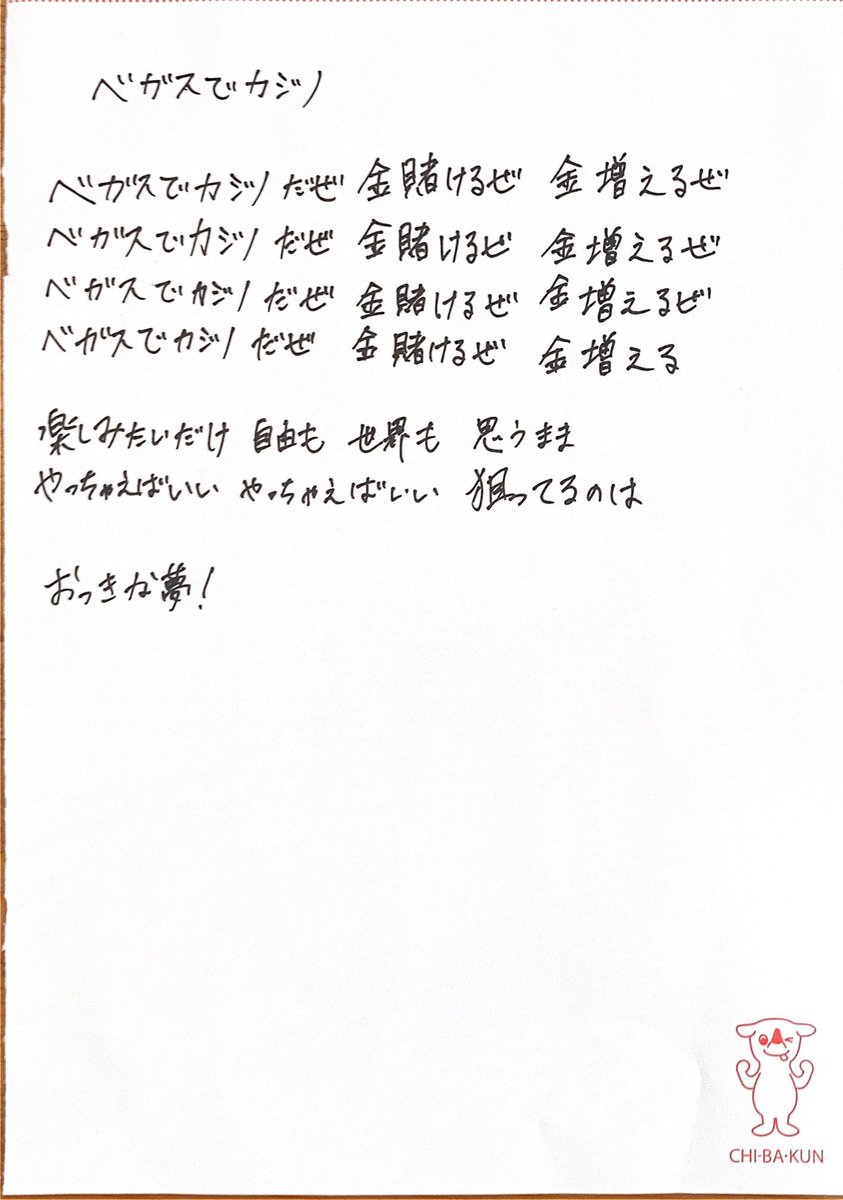 ベガスでカジノ
ベガスでカジノだぜ 金賭けるぜ 金増えるぜ
ベガスでカジノだぜ 金賭けるぜ 金増えるぜ
ベガスでカジノだぜ 金賭けるぜ 金増えるぜ
ベガスでカジノだぜ 金賭けるぜ 金増える
楽しみたいだけ 自由も 世界も 思うまま
やっちゃえばいい やっちゃえばいい 狙ってるのは
おっきな夢!
CHI-BA-KUN